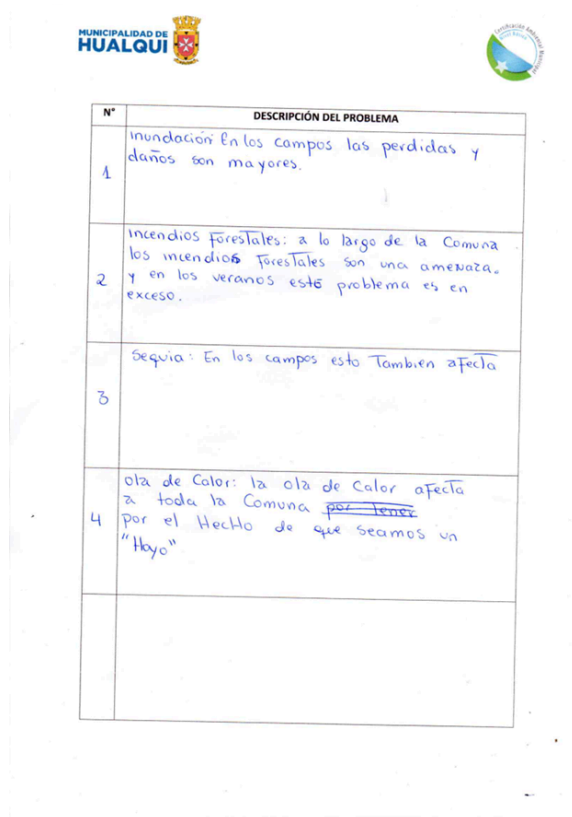 MUNICIPALIDAD DE
HUALQUI
Certificación Ambiental Municipal
N°
DESCRIPCIÓN DEL PROBLEMA
1
Inundación En los campos las perdidas y
daños son mayores.
2
Incendios Forestales: a lo largo de la Comuna
los incendios Forestales son una amenaza.
y en los veranos esté problema es en
exceso.
3
Sequia: En los campos esto Tambien aFecTa
4
ola de Calor: la ola de Calor aFecTa
a toda la Comuna por Tener
por el HecHo de que seamos un
"Hoyo"